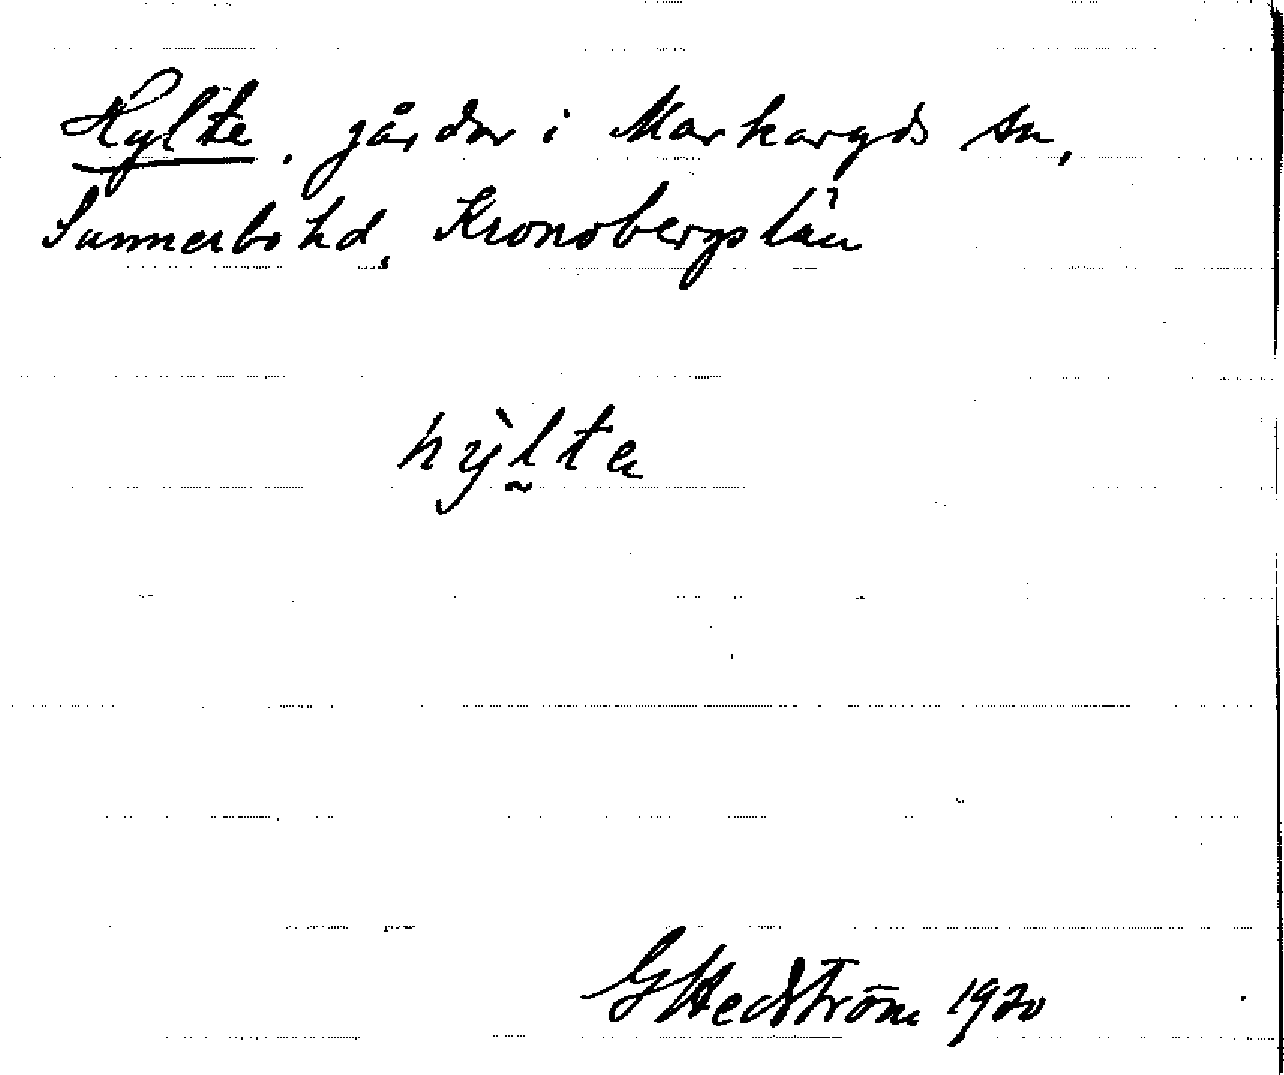 Hylte, gårdar i Markaryds sn,
Sunnerbo hd, Kronobergs län
hỳ̬lte
GHedström 1920